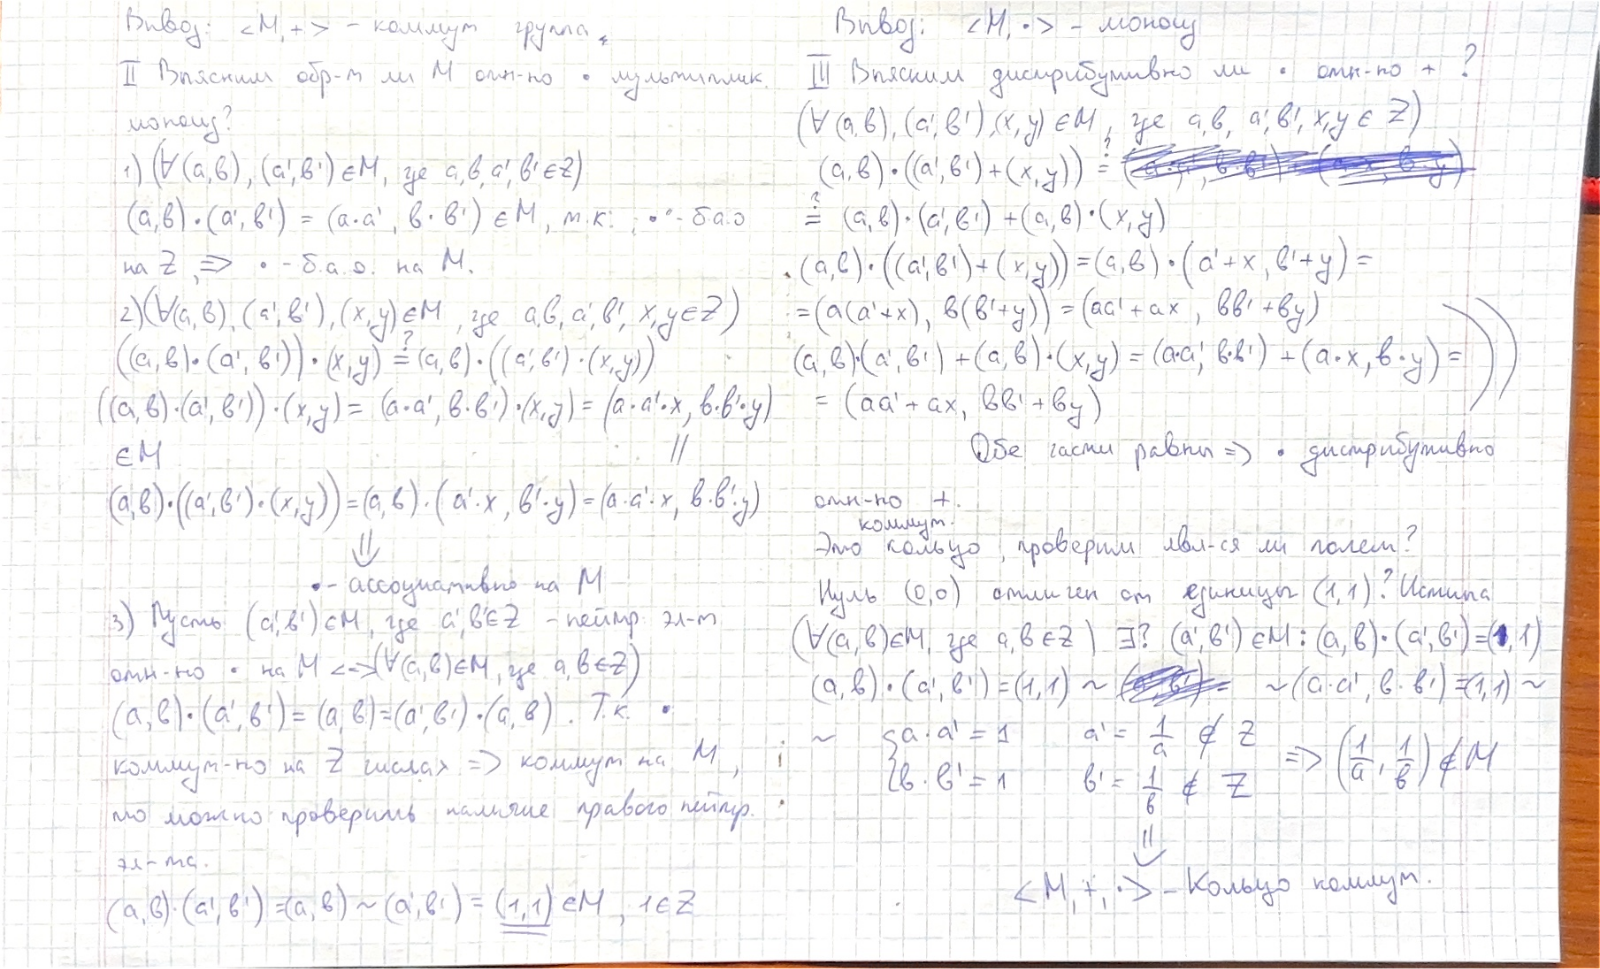 Вывод: <M, +> - коммут группа.
II Выясним обр-т ли M отн-но • мультиплик.
моноид?
1) (∀(a,b), (a',b') ∈ M, где a,b,a',b' ∈ Z)
(a,b)·(a',b') = (a·a', b·b') ∈ M, т.к. "•" - б.а.о
на Z, ⇒ • - б.а.о. на M.
2) (∀(a,b), (a',b'), (x,y) ∈ M, где a,b,a',b', x,y ∈ Z)
((a,b)·(a',b'))·(x,y) ≟ (a,b)·((a',b')·(x,y))
((a,b)·(a',b'))·(x,y) = (a·a', b·b')·(x,y) = (a·a'·x, b·b'·y)
∈ M
||
(a,b)·((a',b')·(x,y)) = (a,b)·(a'·x, b'·y) = (a·a'·x, b·b'·y)
⇓
• - ассоциативно на M
3) Пусть (a',b') ∈ M, где a',b' ∈ Z - нейтр эл-т
отн-но • на M <=> (∀(a,b) ∈ M, где a,b ∈ Z)
(a,b)·(a',b') = (a,b) = (a',b')·(a,b). Т.к. •
коммут-но на Z числах ⇒ коммут на M,
то можно проверить наличие правого нейтр.
эл-та.
(a,b)·(a',b') = (a,b) ~ (a',b') = (1,1) ∈ M, 1 ∈ Z
Вывод: <M, •> - моноид
III Выясним дистрибутивно ли • отн-но + ?
(∀(a,b), (a',b'), (x,y) ∈ M, где a,b, a',b', x,y ∈ Z)
(a,b)·((a',b')+(x,y)) ≟
≟ (a,b)·(a',b') + (a,b)·(x,y)
(a,b)·((a',b')+(x,y)) = (a,b)·(a'+x, b'+y) =
= (a(a'+x), b(b'+y)) = (aa'+ax, bb'+by)
(a,b)·(a',b') + (a,b)·(x,y) = (a·a', b·b') + (a·x, b·y) =
= (aa'+ax, bb'+by)
Обе части равны ⇒ • дистрибутивно
отн-но +.
коммут.
Это кольцо, проверим явл-ся ли полем?
Нуль (0,0) отличен от единицы (1,1)? Истина
(∀(a,b) ∈ M, где a,b ∈ Z) ∃? (a',b') ∈ M : (a,b)·(a',b') = (1,1)
(a,b)·(a',b') = (1,1) ~ ~ (a·a', b·b') = (1,1) ~
~ { a·a' = 1 a' = 1/a ∉ Z
{ b·b' = 1 b' = 1/b ∉ Z ⇒ (1/a, 1/b) ∉ M
⇓
<M, +, •> - Кольцо коммут.